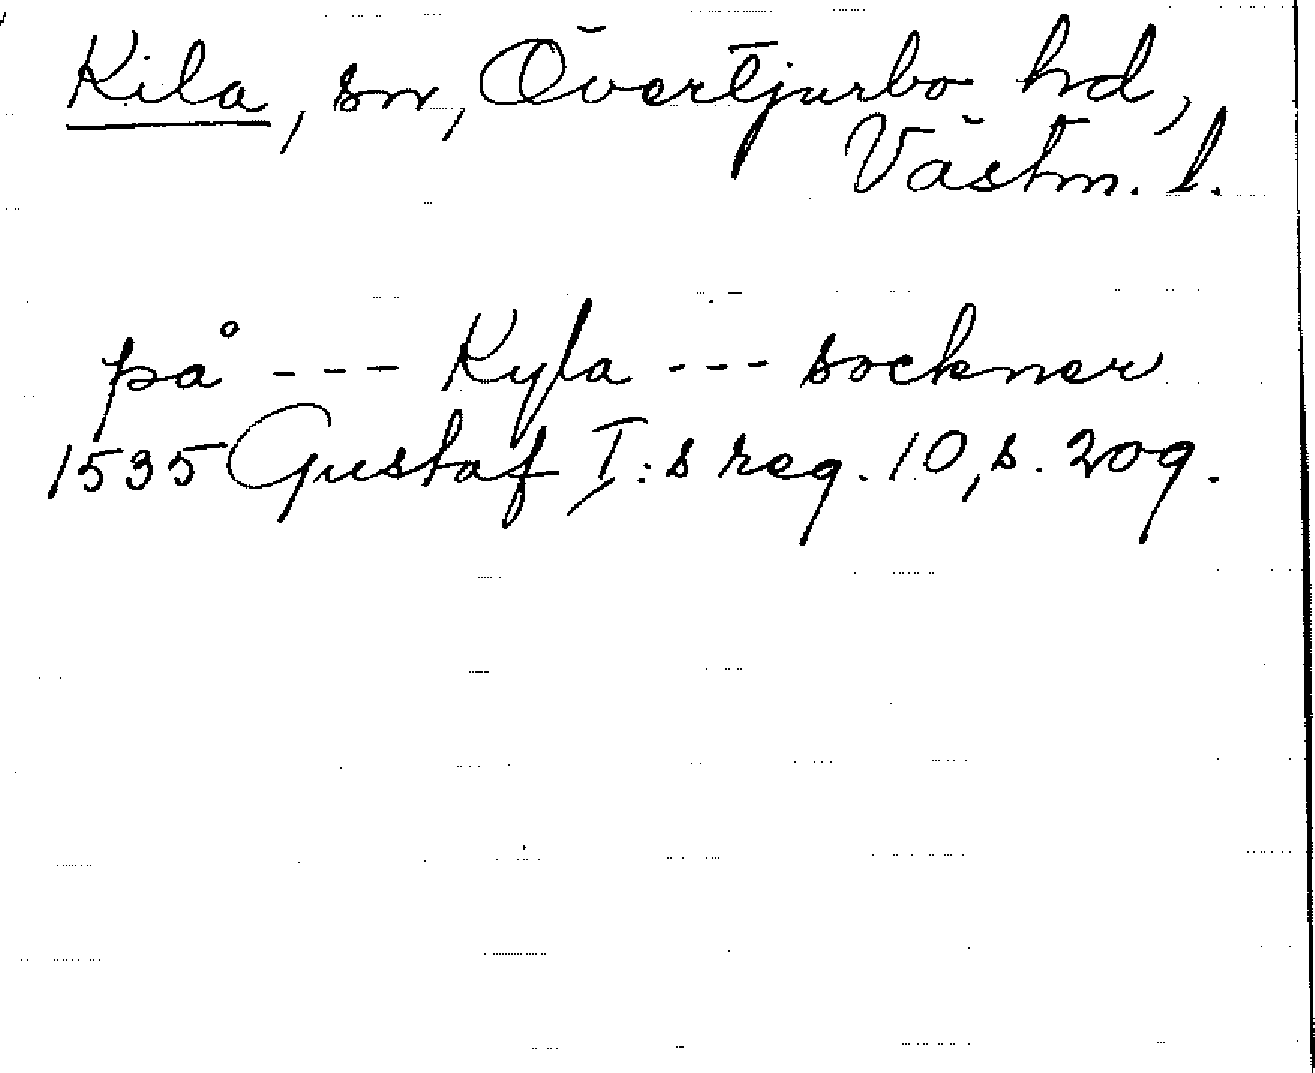 Kila, sn, Övertjurbo hd,
Västm. l.
på --- Kyla --- sockner
1535 Gustaf I:s reg. 10, s. 209.